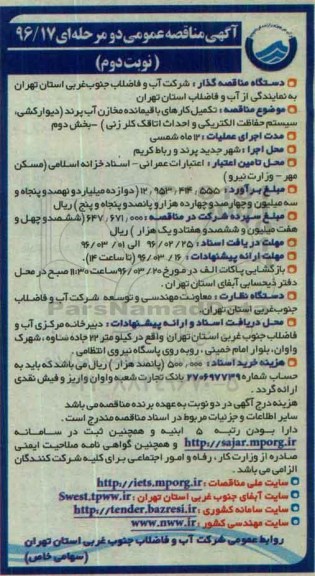 آگهی مناقصه عمومی دو مرحله‌ای ۹۶/۱۷
( نوبت دوم )
دستگاه مناقصه گذار : شرکت آب و فاضلاب جنوب غربی استان تهران
به نمایندگی از آب و فاضلاب استان تهران
موضوع مناقصه : تکمیل کارهای باقیمانده مخازن آب پرند (دیوارکشی،
سیستم حفاظت الکتریکی و احداث اتاقک کلر زنی ) -بخش دوم
مدت اجرای عملیات : ۱۲ ماه شمسی
محل اجرا : شهر جدید پرند و رباط کریم
محل تامین اعتبار : اعتبارات عمرانی - اسناد خزانه اسلامی (مسکن
مهر - وزارت نیرو )
مبلغ برآورد : ۱۲,۹۵۳,۴۱۴,۵۵۵ (دوازده میلیارد و نهصد و پنجاه و
سه میلیون و چهارصد و چهارده هزار و پانصد و پنجاه و پنج) ریال
مبلغ سپرده شرکت در مناقصه : ۶۴۷,۶۷۱,۰۰۰ (ششصد و چهل و
هفت میلیون و ششصد و هفتاد و یک هزار ) ریال
مهلت دریافت اسناد : ۹۶/۰۲/۲۵ الی ۹۶/۰۳/۰۱
مهلت ارائه پیشنهادات : ۹۶/۰۳/۱۶ (تا ساعت ۱۴).
بازگشایی پاکات الف در مورخ ۹۶/۰۳/۲۰ ساعت ۱۱:۳۰ صبح در محل
دفتر ذیحسابی آبفای استان تهران .
دستگاه نظارت : معاونت مهندسی و توسعه شرکت آب و فاضلاب
جنوب غربی استان تهران.
محل دریافت اسناد و ارائه پیشنهادات : دبیرخانه مرکزی آب و
فاضلاب جنوب غربی استان تهران واقع در کیلومتر ۲۳ جاده ساوه ، شهرک
واوان، بلوار امام خمینی ، روبه روی پاسگاه نیروی انتظامی .
هزینه خرید اسناد : ۵۰۰,۰۰۰ (پانصد هزار ) ریال می باشد که باید به
حساب شماره ۲۷۰۶۹۷۷۳۹ بانک تجارت شعبه واوان واریز و فیش نقدی
ارائه گردد .
هزینه درج آگهی در دو نوبت به عهده برنده مناقصه می باشد
سایر اطلاعات و جزئیات مربوط در اسناد مناقصه مندرج است .
دارا بودن رتبه ۵ ابنیه و همچنین ثبت در سامانه
http://sajar.mporg.ir و همچنین گواهی نامه صلاحیت ایمنی
صادره از وزارت کار ، رفاه و امور اجتماعی برای کلیه شرکت کنندگان
الزامی می باشد .
سایت ملی مناقصات : http://iets.mporg.ir
سایت آبفای جنوب غربی استان تهران : Swest.tpww.ir
سایت سامانه کشوری : http://tender.bazresi.ir
سایت مهندسی کشور : www.nww.ir
روابط عمومی شرکت آب و فاضلاب جنوب غربی استان تهران
(سهامی خاص)